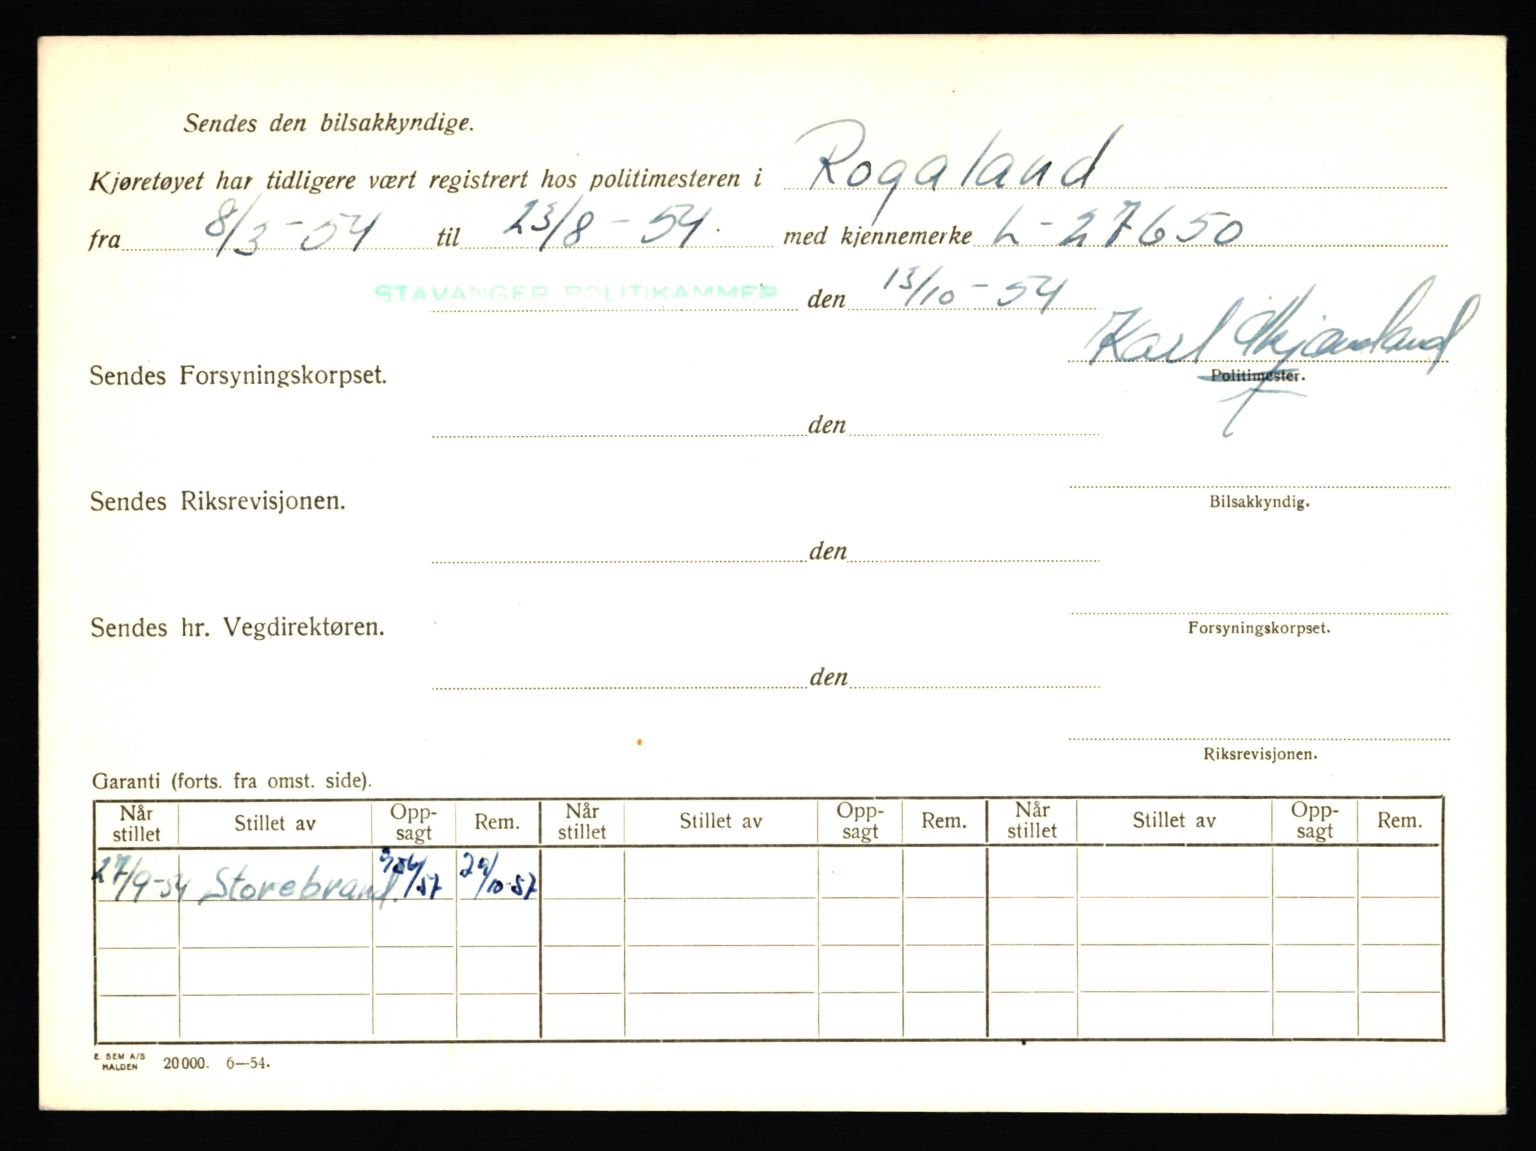 Sendes den bilsakkyndige.
Kjøretøyet har tidligere vært registrert hos politimesteren i Rogaland
fra 8/3-54 til 23/8-54. med kjennemerke L-27650
STAVANGER POLITIKAMMER den 13/10-54
Karl
Sendes Forsyningskorpset. Politimester.
den
Sendes Riksrevisjonen. Bilsakkyndig.
den
Sendes hr. Vegdirektøren. Forsyningskorpset.
den
Riksrevisjonen.
Garanti (forts. fra omst. side).
Når stillet Stillet av Opp-sagt Rem. Når stillet Stillet av Opp-sagt Rem. Når stillet Stillet av Opp-sagt Rem.
27/9-54 Storebrand. /57 /10-57
E. SEM A/S
HALDEN 20000. 6—54.